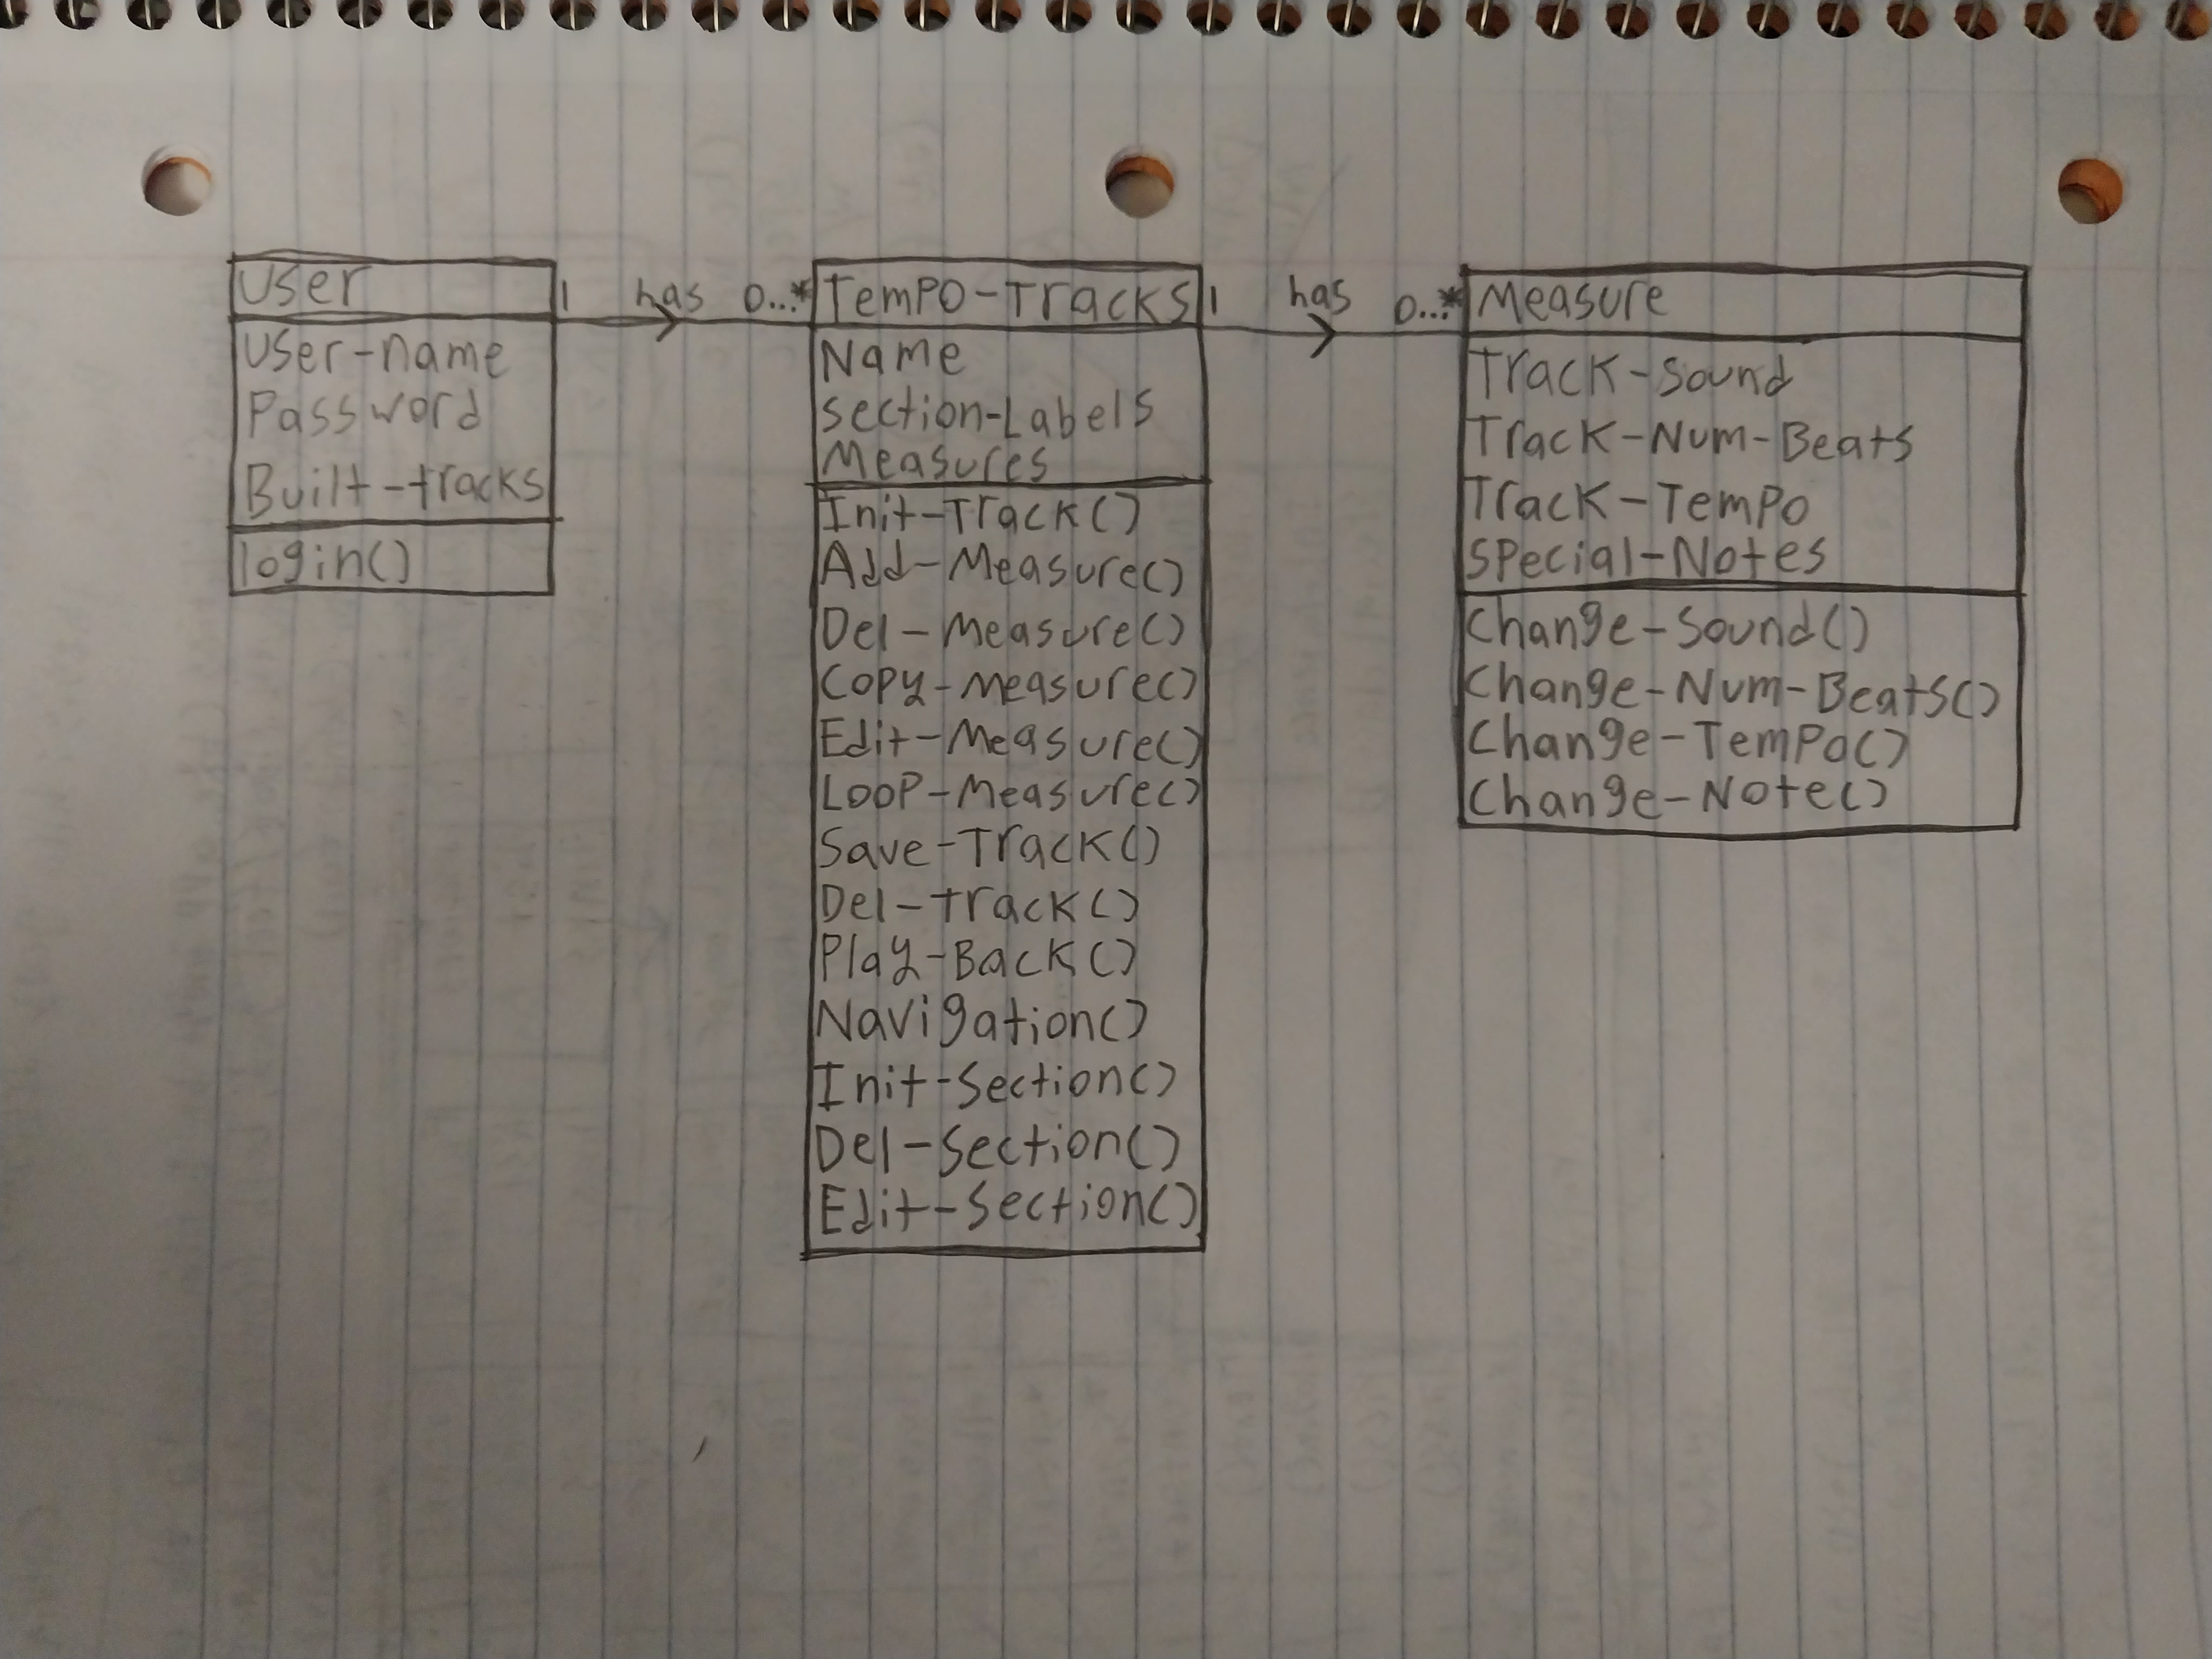 User
User-name
Password
Built-tracks
login()
1 has 0...*
Tempo-Tracks
Name
Section-Labels
Measures
Init-Track()
Add-Measure()
Del-Measure()
Copy-Measure()
Edit-Measure()
Loop-Measure()
Save-Track()
Del-Track()
Play-Back()
Navigation()
Init-Section()
Del-Section()
Edit-Section()
1 has 0...*
Measure
Track-Sound
Track-Num-Beats
Track-Tempo
Special-Notes
Change-Sound()
Change-Num-Beats()
Change-Tempo()
Change-Note()